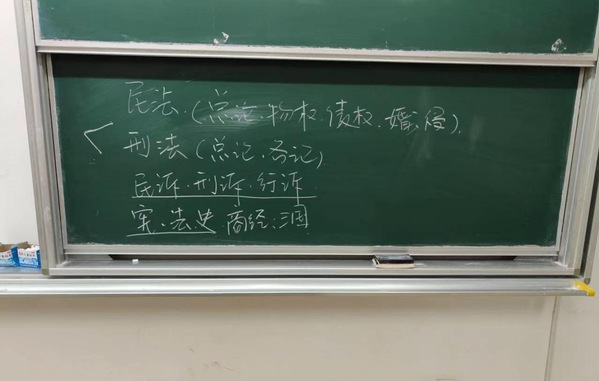 民法.(总论.物权.债权.婚.侵).
刑法(总论.各论)
民诉.刑诉.行诉
宪.法史 商经.三国